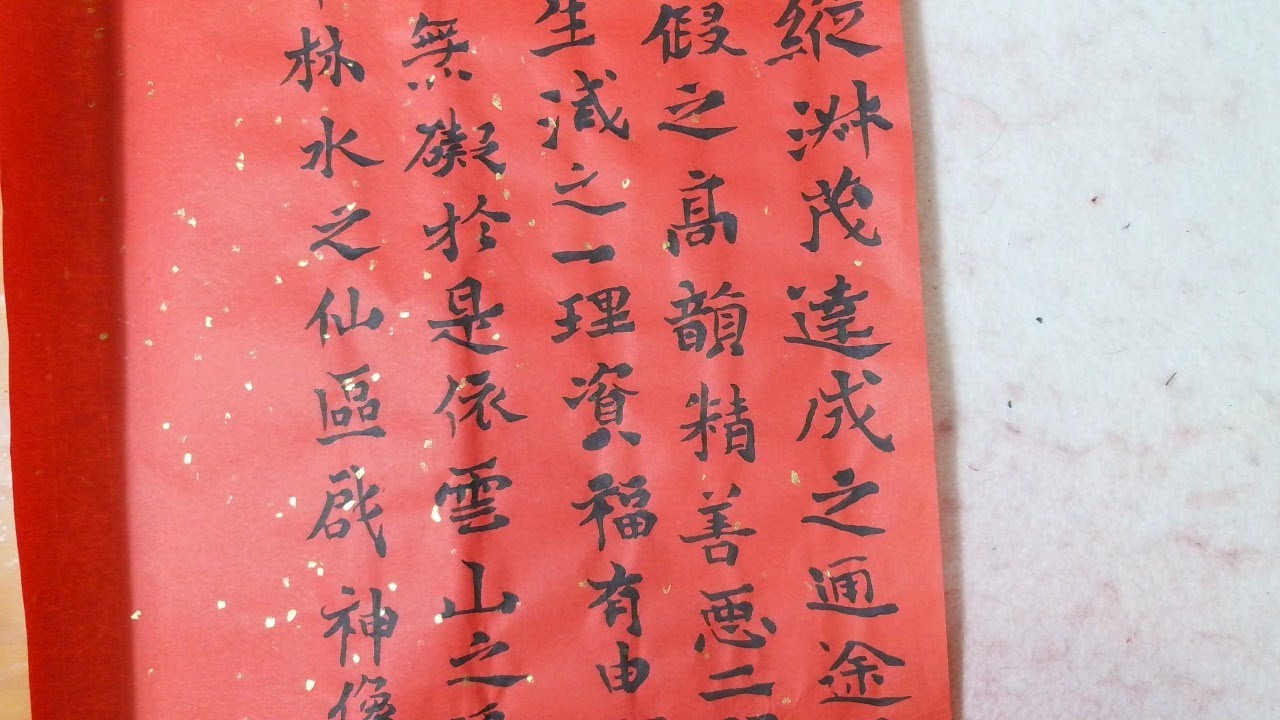 縱茂達成之途
假之高韻精善悪二
生滅之一理資福有由
無礙於是依雲山之
林水之仙區啟神像